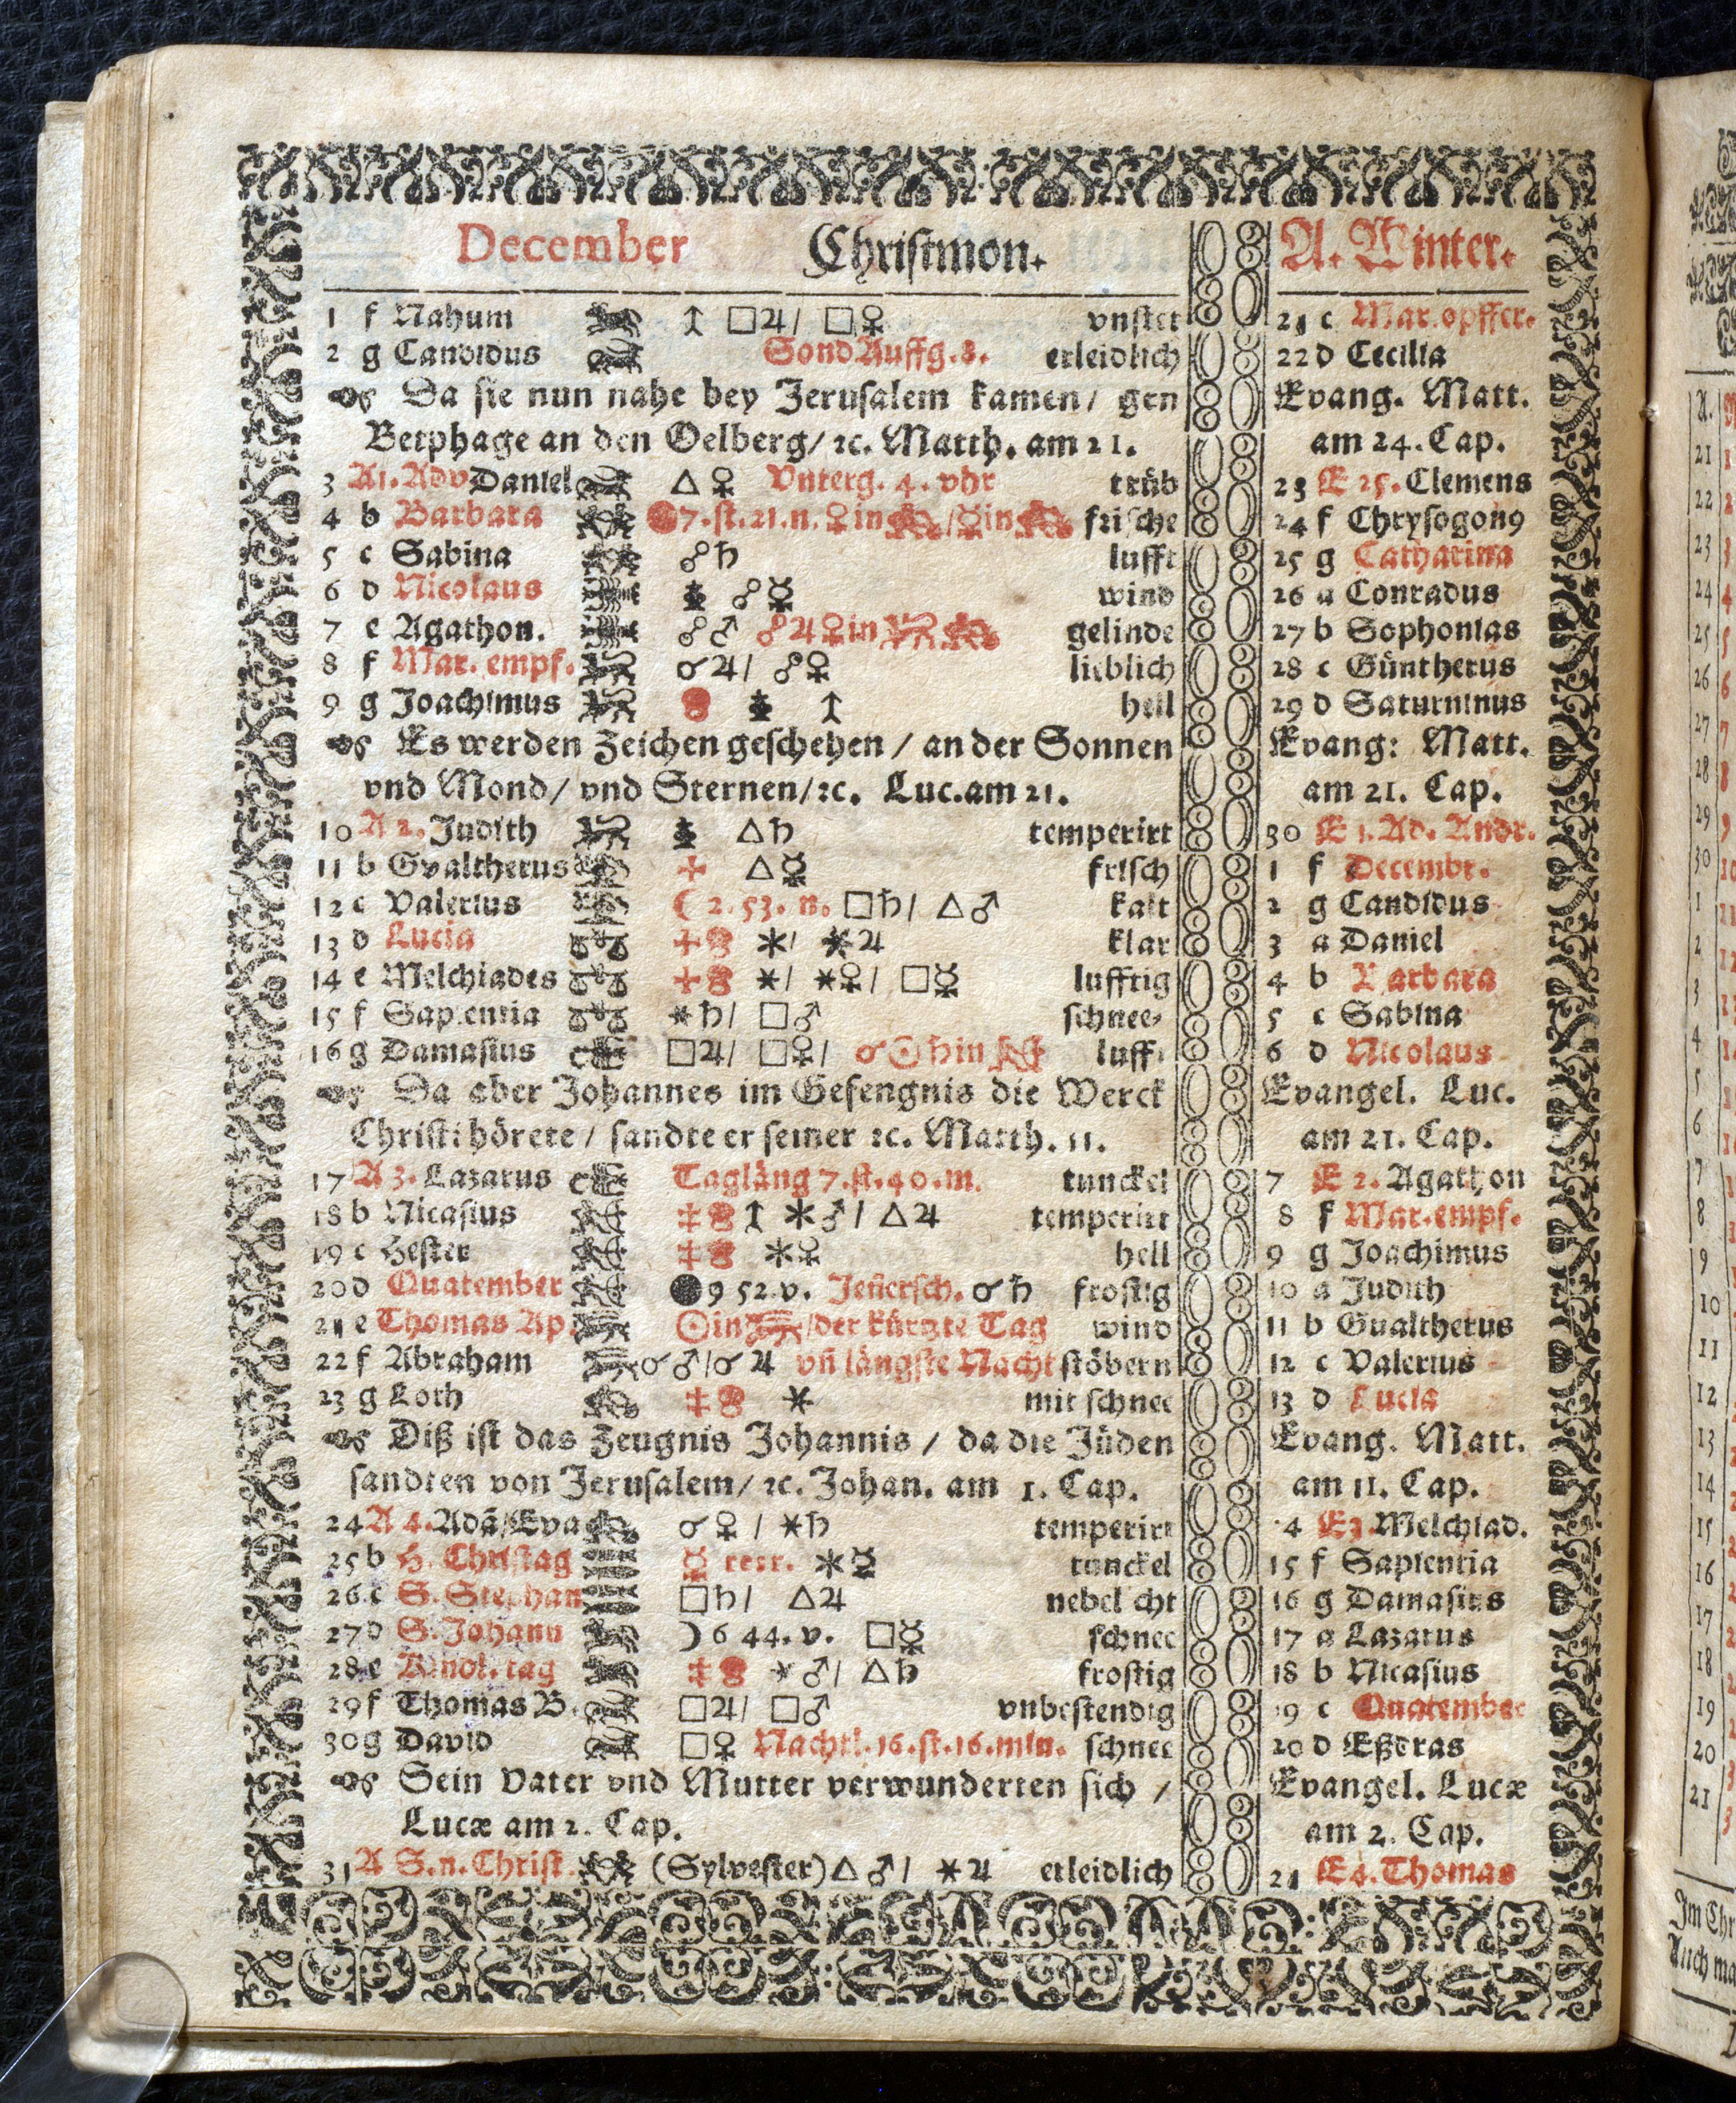 December Christmon. A. Winter.
1 f Nahum □♃/ □♀ vnstet 21 c Mar. opffer.
2 g Candidus Sond Auffg. 8. erleidlich 22 d Cecilia
Da sie nun nahe bey Jerusalem kamen/ gen Evang. Matt.
Betphage an den Oelberg/ ꝛc. Matth. am 21. am 24. Cap.
3 A 1. Adv Daniel △♀ Vnterg. 4. vhr trüb 23 E 25. Clemens
4 b Barbara 7. st. 21. n. ♀ in / ☿ in frische 24 f Chrysogonꝰ
5 c Sabina ☍♄ lufft 25 g Catharina
6 d Nicolaus ☍☿ wind 26 a Conradus
7 e Agathon. ☍♂ ☍♃♀ in gelinde 27 b Sophonias
8 f Mar. empf. ☌♃/ ☍♀ lieblich 28 c Güntherus
9 g Joachimus hell 29 d Saturninus
Es werden Zeichen geschehen / an der Sonnen Evang: Matt.
vnd Mond/ vnd Sternen/ ꝛc. Luc. am 21. am 21. Cap.
10 A 2. Judith △♄ temperirt 30 E 1. Ad. Andr.
11 b Gvaltherus △☿ frisch 1 f Decembr.
12 c Valerius ☾ 2. 53. n. □♄/ △♂ kalt 2 g Candidus
13 d Lucia ✶/ ✶♃ klar 3 a Daniel
14 e Melchiades ✶/ ✶♀/ □☿ lufftig 4 b Barbara
15 f Sapientia ✶♄/ □♂ schnee- 5 c Sabina
16 g Damasius □♃/ □♀/ ☌☉♄ in lufft 6 d Nicolaus
Da aber Johannes im Gefengnis die Werck Evangel. Luc.
Christi hörete / sandte er seiner ꝛc. Matth. 11. am 21. Cap.
17 A 3. Lazarus Tagläng 7. st. 40. m. tunckel 7 E 2. Agathon
18 b Nicasius ✶♂/ △♃ temperirt 8 f Mar. empf.
19 c Hester ✶♀ hell 9 g Joachimus
20 d Quatember ● 9 52. v. Jeñersch. ☌♄ frostig 10 a Judith
21 e Thomas Ap. ☉ in /der kürtzte Tag wind 11 b Gualtherus
22 f Abraham ☌♂/☌♃ vñ längste Nacht stöbern 12 c Valerius
23 g Loth ✶ mit schnee 13 d Lucia
Diß ist das Zeugnis Johannis / da die Jüden Evang. Matt.
sandten von Jerusalem/ ꝛc. Johan. am 1. Cap. am 11. Cap.
24 A 4. Adã/Eva ☌♀ / ✶♄ temperirt 14 E 3. Melchiad.
25 b H. Christag ☿ retr. ✶☿ tunckel 15 f Sapientia
26 c S. Stephan □♄/ △♃ nebelicht 16 g Damasius
27 d S. Johann ☽ 6 44. v. □☿ schnee 17 a Lazarus
28 e Kindl. tag ✶♂/ △♄ frostig 18 b Nicasius
29 f Thomas B. □♃/ □♂ vnbestendig 19 c Quatember
30 g David □♀ Nachtl. 16. st. 16. min. schnee 20 d Eßdras
Sein Vater vnd Mutter verwunderten sich / Evangel. Lucæ
Lucæ am 2. Cap. am 2. Cap.
31 A S. n. Christ. (Sylvester) △♂/ ✶♃ erleidlich 21 E 4. Thomas